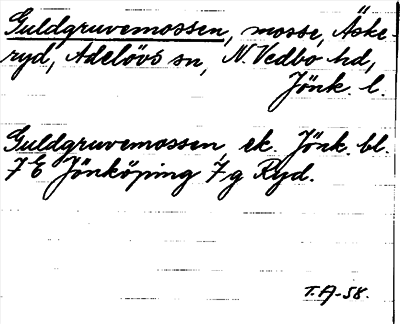 Guldgruvemossen, mosse, Äske-
ryd, Adelövs sn, N. Vedbo hd,
Jönk. l.
Guldgruvemossen, ek. Jönk. bl.
7 E Jönköping 7 g Ryd.
T.A-58.